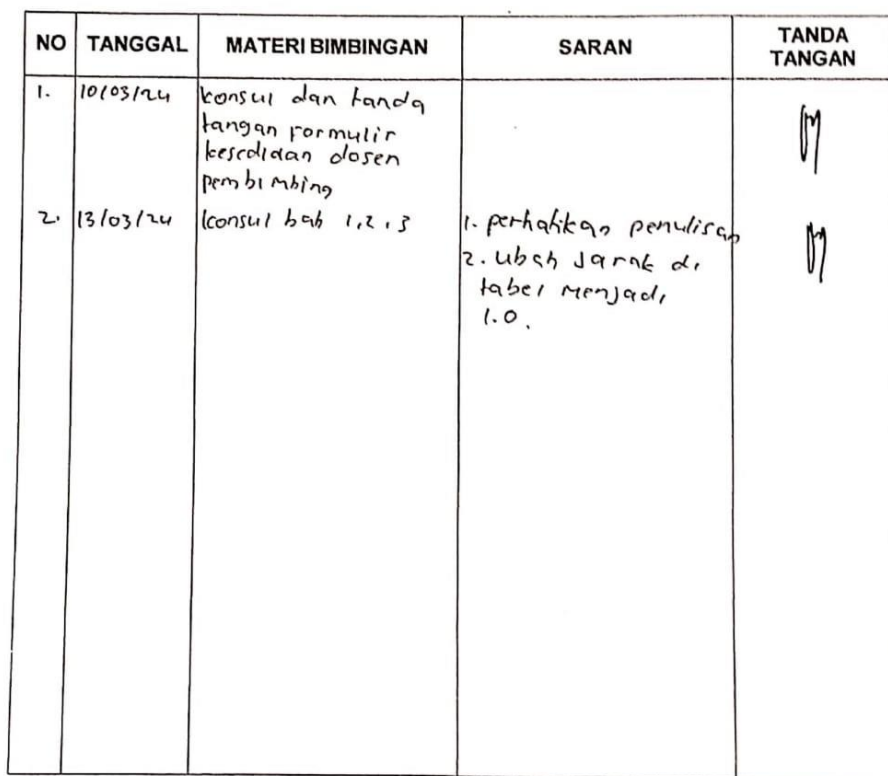 NO TANGGAL MATERI BIMBINGAN SARAN TANDA TANGAN
1. 10/03/24 konsul dan tanda
tangan formulir
kesedidan dosen
pembimbing
2. 13/03/24 konsul bab 1,2,3 1. perhatikan penulisan
2. ubah jarak di
tabel menjadi
1.0.